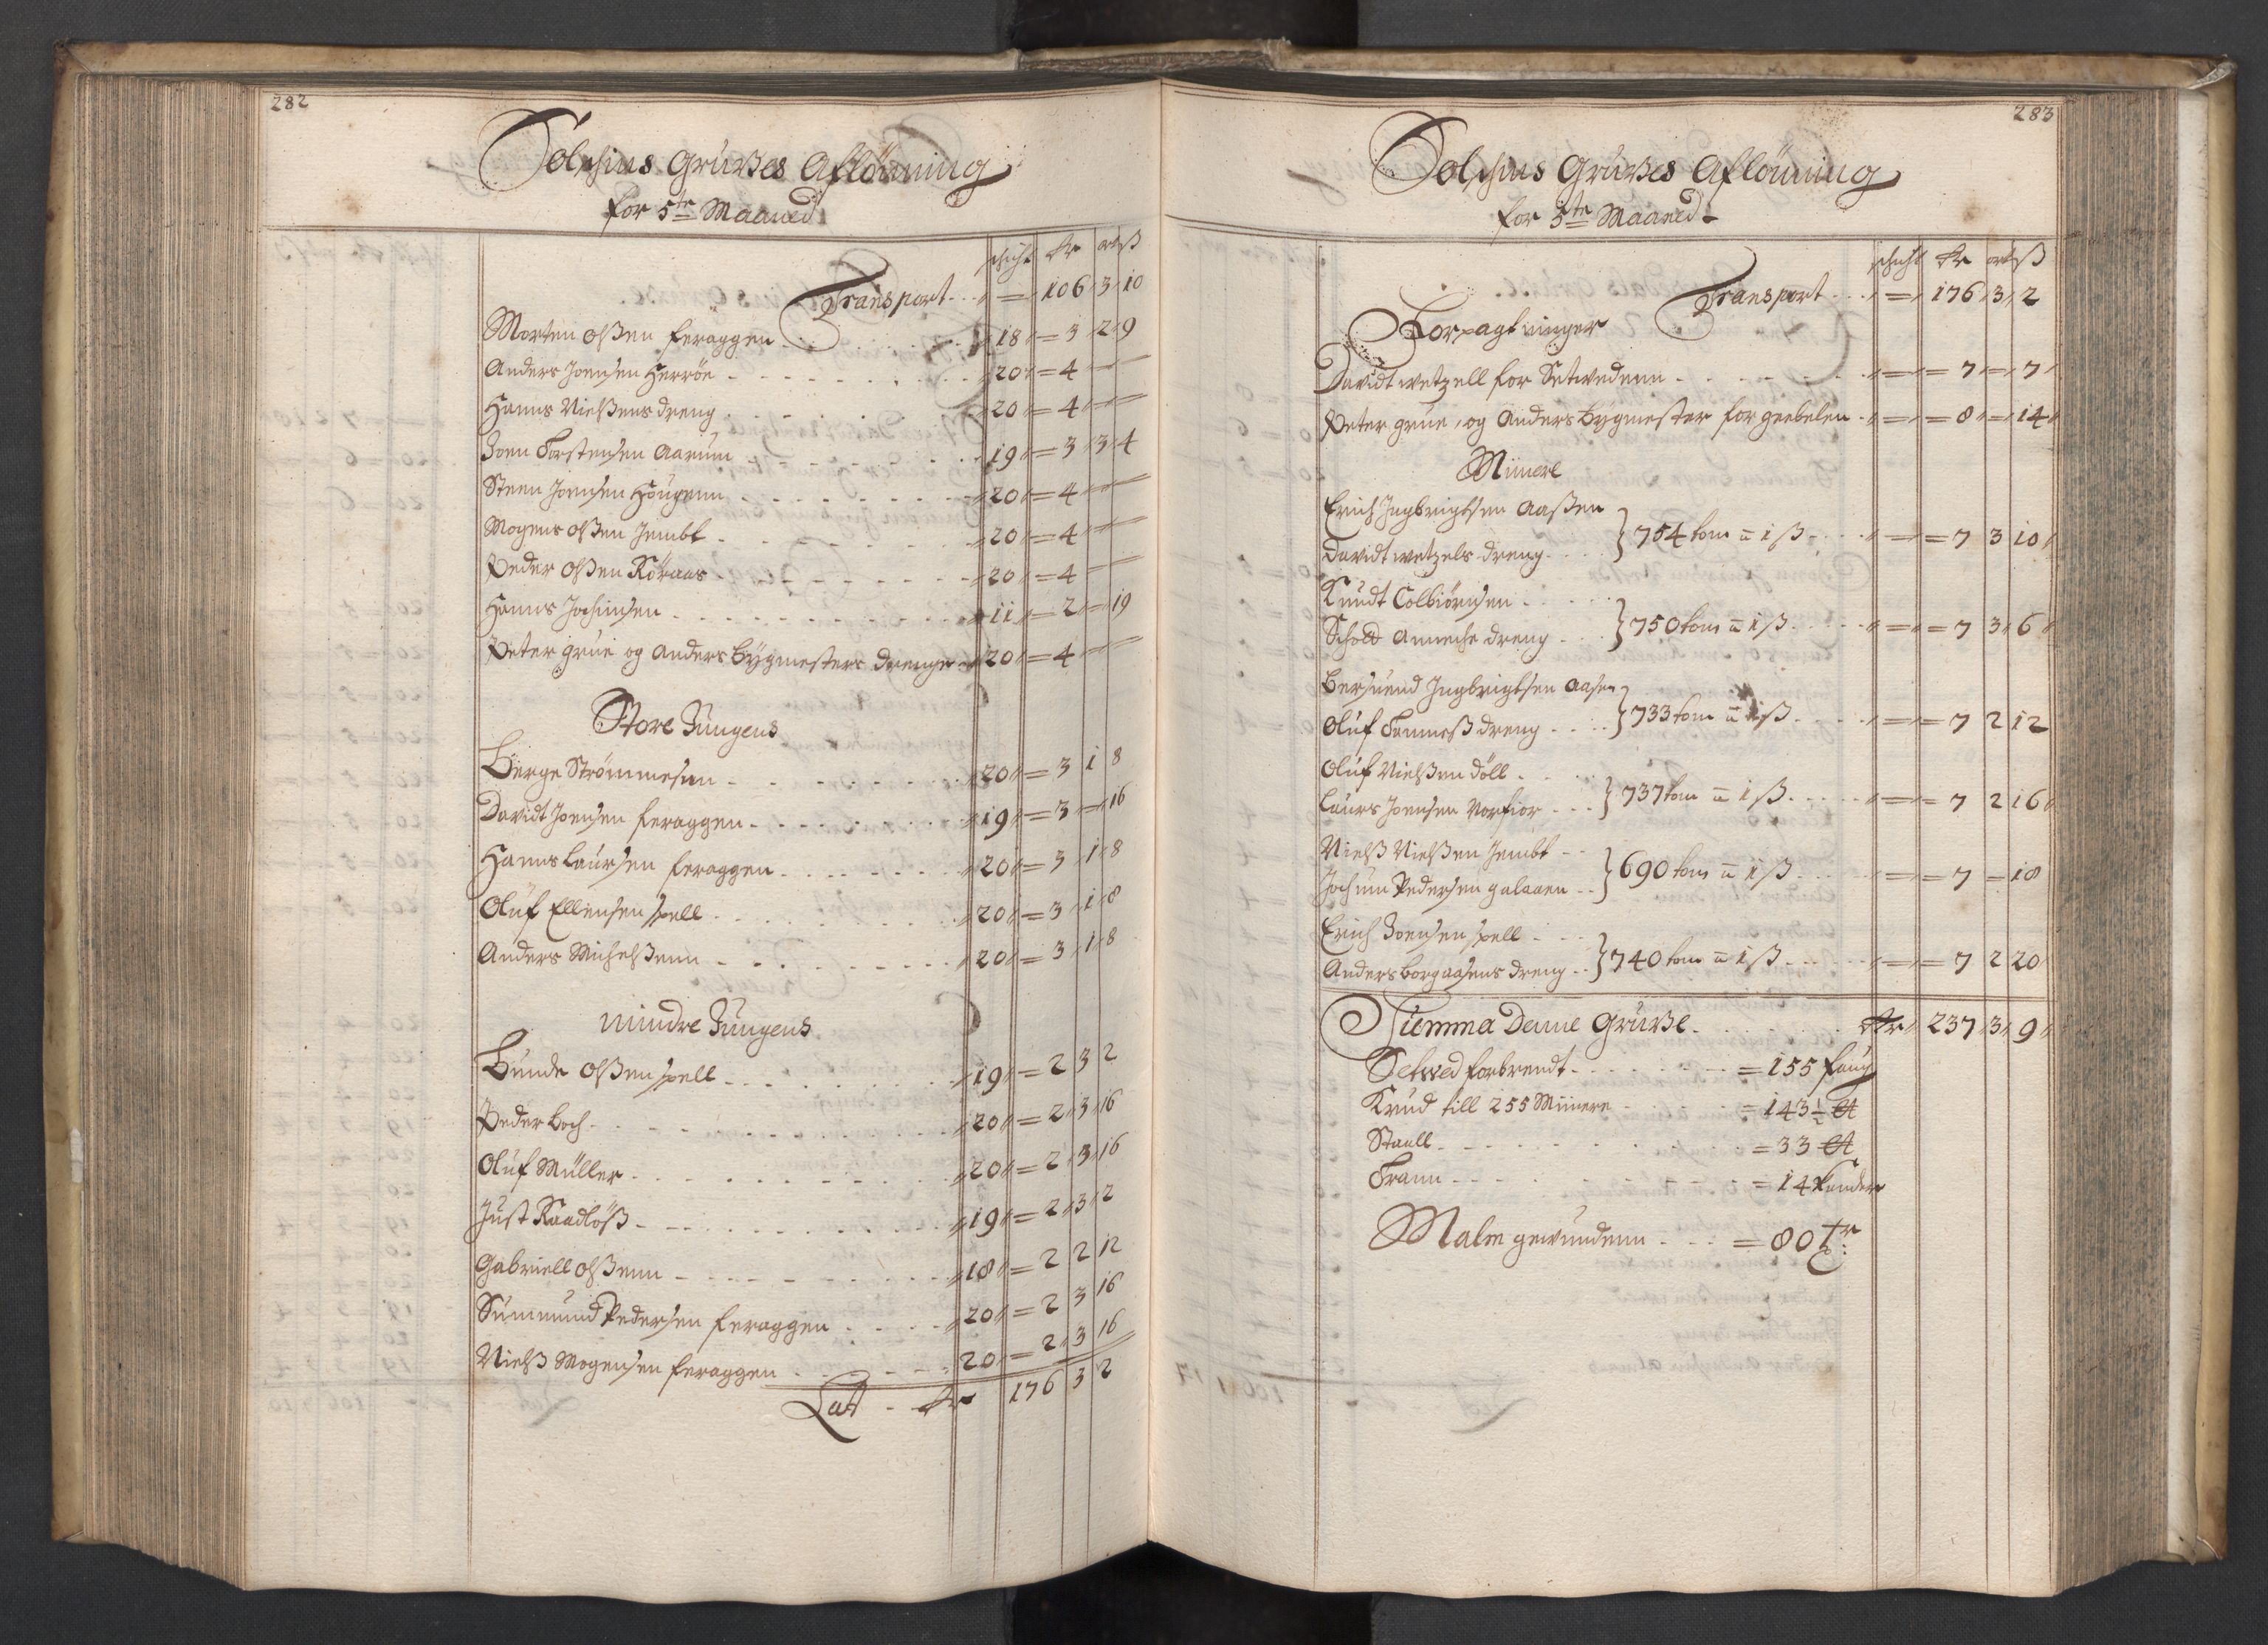 282
Solschins Grufves Aflönning
for 5te Maaned
schicht dr ort ß
Transport . . = 106 3 10
Morten Olßen feraggen . . . 18 = 3 2 9
Anders Joensen Herröe . . . 20 = 4 =
Hanns Nielßens dreng . . . 20 = 4 =
Joen Torstensen Aarüm . . . 19 = 3 3 4
Steen Joensen Hougenn . . . 20 = 4 =
Mogens Olßen Jembt . . . 20 = 4 =
Peder Olßen Röraas . . . 20 = 4 =
Hanns Jochimsen . . . 11 = 2 = 19
Peter grüe og Anders Bygmesters drenge 20 = 4 =
Store Jungens
Börge Strømmesen . . . 20 = 3 1 8
Davidt Joensen feraggen . . . 19 = 3 = 16
Hanns Laursen feraggen . . . 20 = 3 1 8
Oluf Ellensen spell . . . 20 = 3 1 8
Anders Michelßenn . . . 20 = 3 1 8
mindre Jungens
Bunde Olßen spell . . . 19 = 2 3 2
Peder Koch . . . 20 = 2 3 16
Oluf Müller . . . 20 = 2 3 16
Just Raadlöß . . . 19 = 2 3 2
Gabriell Olßenn . . . 18 = 2 2 12
Simmund Pedersen feraggen . . . 20 = 2 3 16
Nielß Mogensen feraggen . . . 20 = 2 3 16
Lat . . dr 176 3 2
283
Solschins Grufves Aflönning
for 5te Maaned
schicht dr ort ß
Transport . . = 176 3 2
Forpagtninger
Davidt wetzell for Setwedenn . . . = = 7 = 7
Peter grüe, og Anders bygmester for geebelen . = = 8 = 14
Minere
Erich Ingbrigtsen Aaßen
Davidt wetzels dreng . . } 754 tom a 1 ß . . = = 7 3 10
Knudt Colbiörnsen . .
Schold Anneche dreng . . } 750 tom a 1 ß . . = = 7 3 6
Bersuend Ingbrigtsen Aasen
Oluf Tommeß dreng . . } 733 tom a 1 ß . . = = 7 2 12
Oluf Nielßen döll . .
Laurs Joensen Norfior . . } 737 tom a 1 ß . . = = 7 2 16
Nielß Nielßen Jembt . .
Jochum Pedersen galaaen . . } 690 tom a 1 ß . . = = 7 = 18
Erich Joensen spell . .
Anders borgaasens dreng . . } 740 tom a 1 ß . . = = 7 2 20
Summa Denne Grufve . . . dr 237 3 9
Setwed forbrendt . . . = 155 faug
Krud till 255 Minere . . . = 143 ½ ℔
Staall . . . = 33 ℔
Trann . . . = 14 kander
Malm gewundenn . . . = 80 Tr: